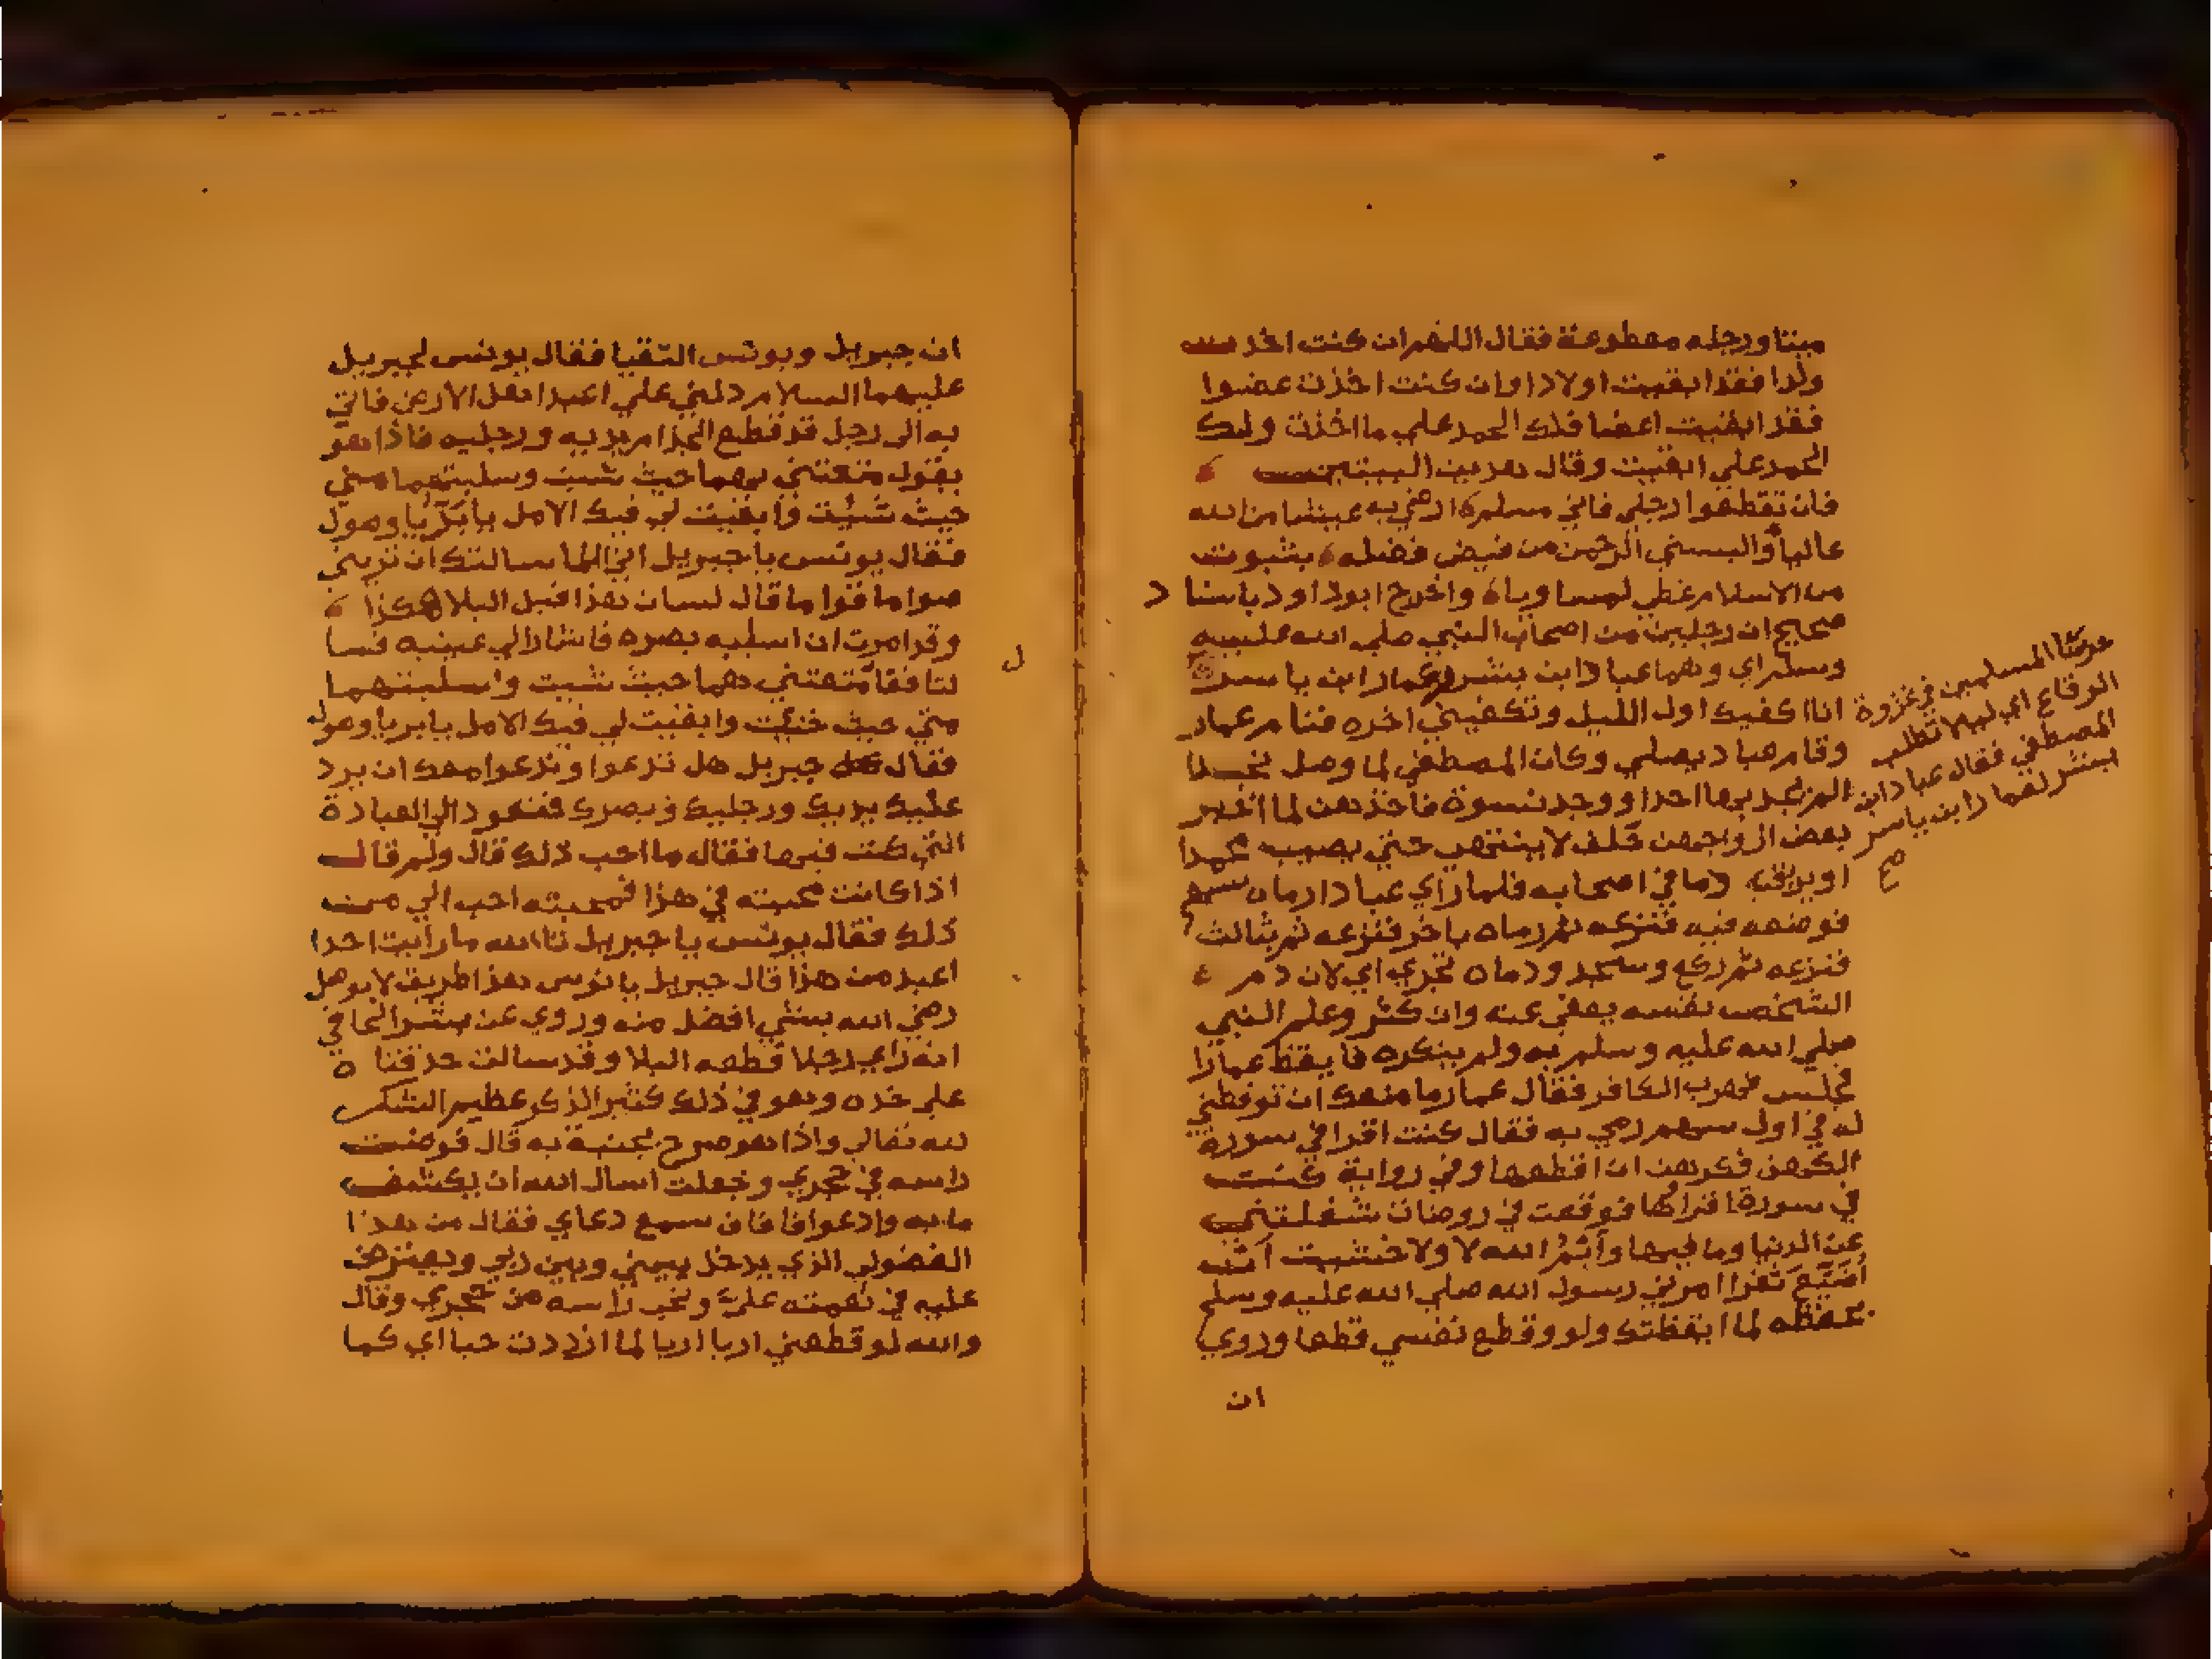 ميتا ورجله مقطوعة فقال اللهم ان كنت اخذت
ولدا فقد ابقيت اولادا وان كنت اخذت عضوا
فقد ابقيت اعضا فلك الحمد علي ما اخذت ولك
الحمد علي ابقيت وقال هذين البيتين
فان تقطعوا رجلي فاني مسلم ارضي به عيشا من الله
عاليا والبسني الرحمن من فيض فضله بثبوت
من الاسلام غطي لمساويا واخرج ابوداود باسنا د
صحيح ان رجلين من اصحاب النبي صلي الله عليه
وسلم اي وهما عبادا بن بشر وعمارا بن ياسر
انا اكفيك اول الليل وتكفيني اخره فنام عمار
وقام عباد يصلي وكان المصطفي لما وصل
الم نجد بها احدا ووجد نسوة فاخذهن لما اخبر
بعض ازواجهن حلف لا ينتهي حتي يصيب محمدا
او يريق دما في اصحابه فلما راي عبادا رماه بسهم
فوضعه فيه فنزعه ثم رماه باخر فنزعه ثم بثالث
فنزعه ثم ركع وسجد ودماه تجري اي لان دم
الشخص نفسه يعفي عنه وان كثر وعلم النبي
صلي الله عليه وسلم به ولم ينكره فايقظ عمارا
فجلس فهرب الكافر فقال عمار ما منعك ان توقظني
له في اول سهم رمي به فقال كنت اقرا في سورة
الكهف فكرهت ان اقطعها وفي رواية كنت
في سورة اقراها فوقعت في روضات شغلتني
عن الدنيا وما فيها وآيم الله لا ولا خشيت أن
أضيع ثغرا امرني رسول الله صلي الله عليه وسلم
بحفظه لما ايقظتك ولو وقطع نفسي قطعا وروي
ان
حرسنا المسلمين في غزوة
الرقاع اي ليلا تطلب
المصطفي فقال عبادا بن
بشر لعمارا بن ياسر
صح
ان جبريل ويونس التقيا فقال يونس لجبريل
عليهما السلام دلني علي اعبد اهل الارض فاتي
به الي رجل قد قطع الجذام يديه ورجليه فاذا هو
يقول متعتني بهما حيث شيت وسلبتهما مني
حيث شئت وابقيت لي فيك الامل يا بر يا وصول
فقال يونس يا جبريل اني انما سالتك ان تريني
صواما قواما قال لسان هذا قبل البلا هكذا
وقد امرت ان اسلبه بصره فاشار الي عينيه فسا
لتا فقال متعتني بهما حيث شيت وسلبتهما
مني حيث شئت وابقيت لي فيك الامل يا بر يا وصول
فقال جبريل هل تدعوا وندعوا معك ان يرد
عليك يديك ورجليك وبصرك فتعود الي العبادة
التي كنت فيها فقال ما احب ذلك قال ولم قال
اذا كانت محبته في هذا فمحبته احب الي من
ذلك فقال يونس يا جبريل تا الله ما رأيت احدا
اعبد من هذا قال جبريل يا يونس هذا طريق لا يوصل
رضي الله بشي افضل منه وروي عن بشر الحافي
انه راي رجلا قطعه البلا وقد سالت حدقتا ه
علي خده وهو في ذلك كثير الذكر عظيم الشكر
لله تعالي واذا هو صرح بجنبة به قال فوضعت
راسه في حجري وجعلت اسال الله ان يكشف
ما به وادعوا فافاق سمع دعاي فقال من هذا
الفضولي الذي يدخل بيني وبين ربي ويعترض
عليه في نعمته علي ونحي راسه من حجري وقال
والله لو قطعني اربا اربا لما ازددت حبا اي كما